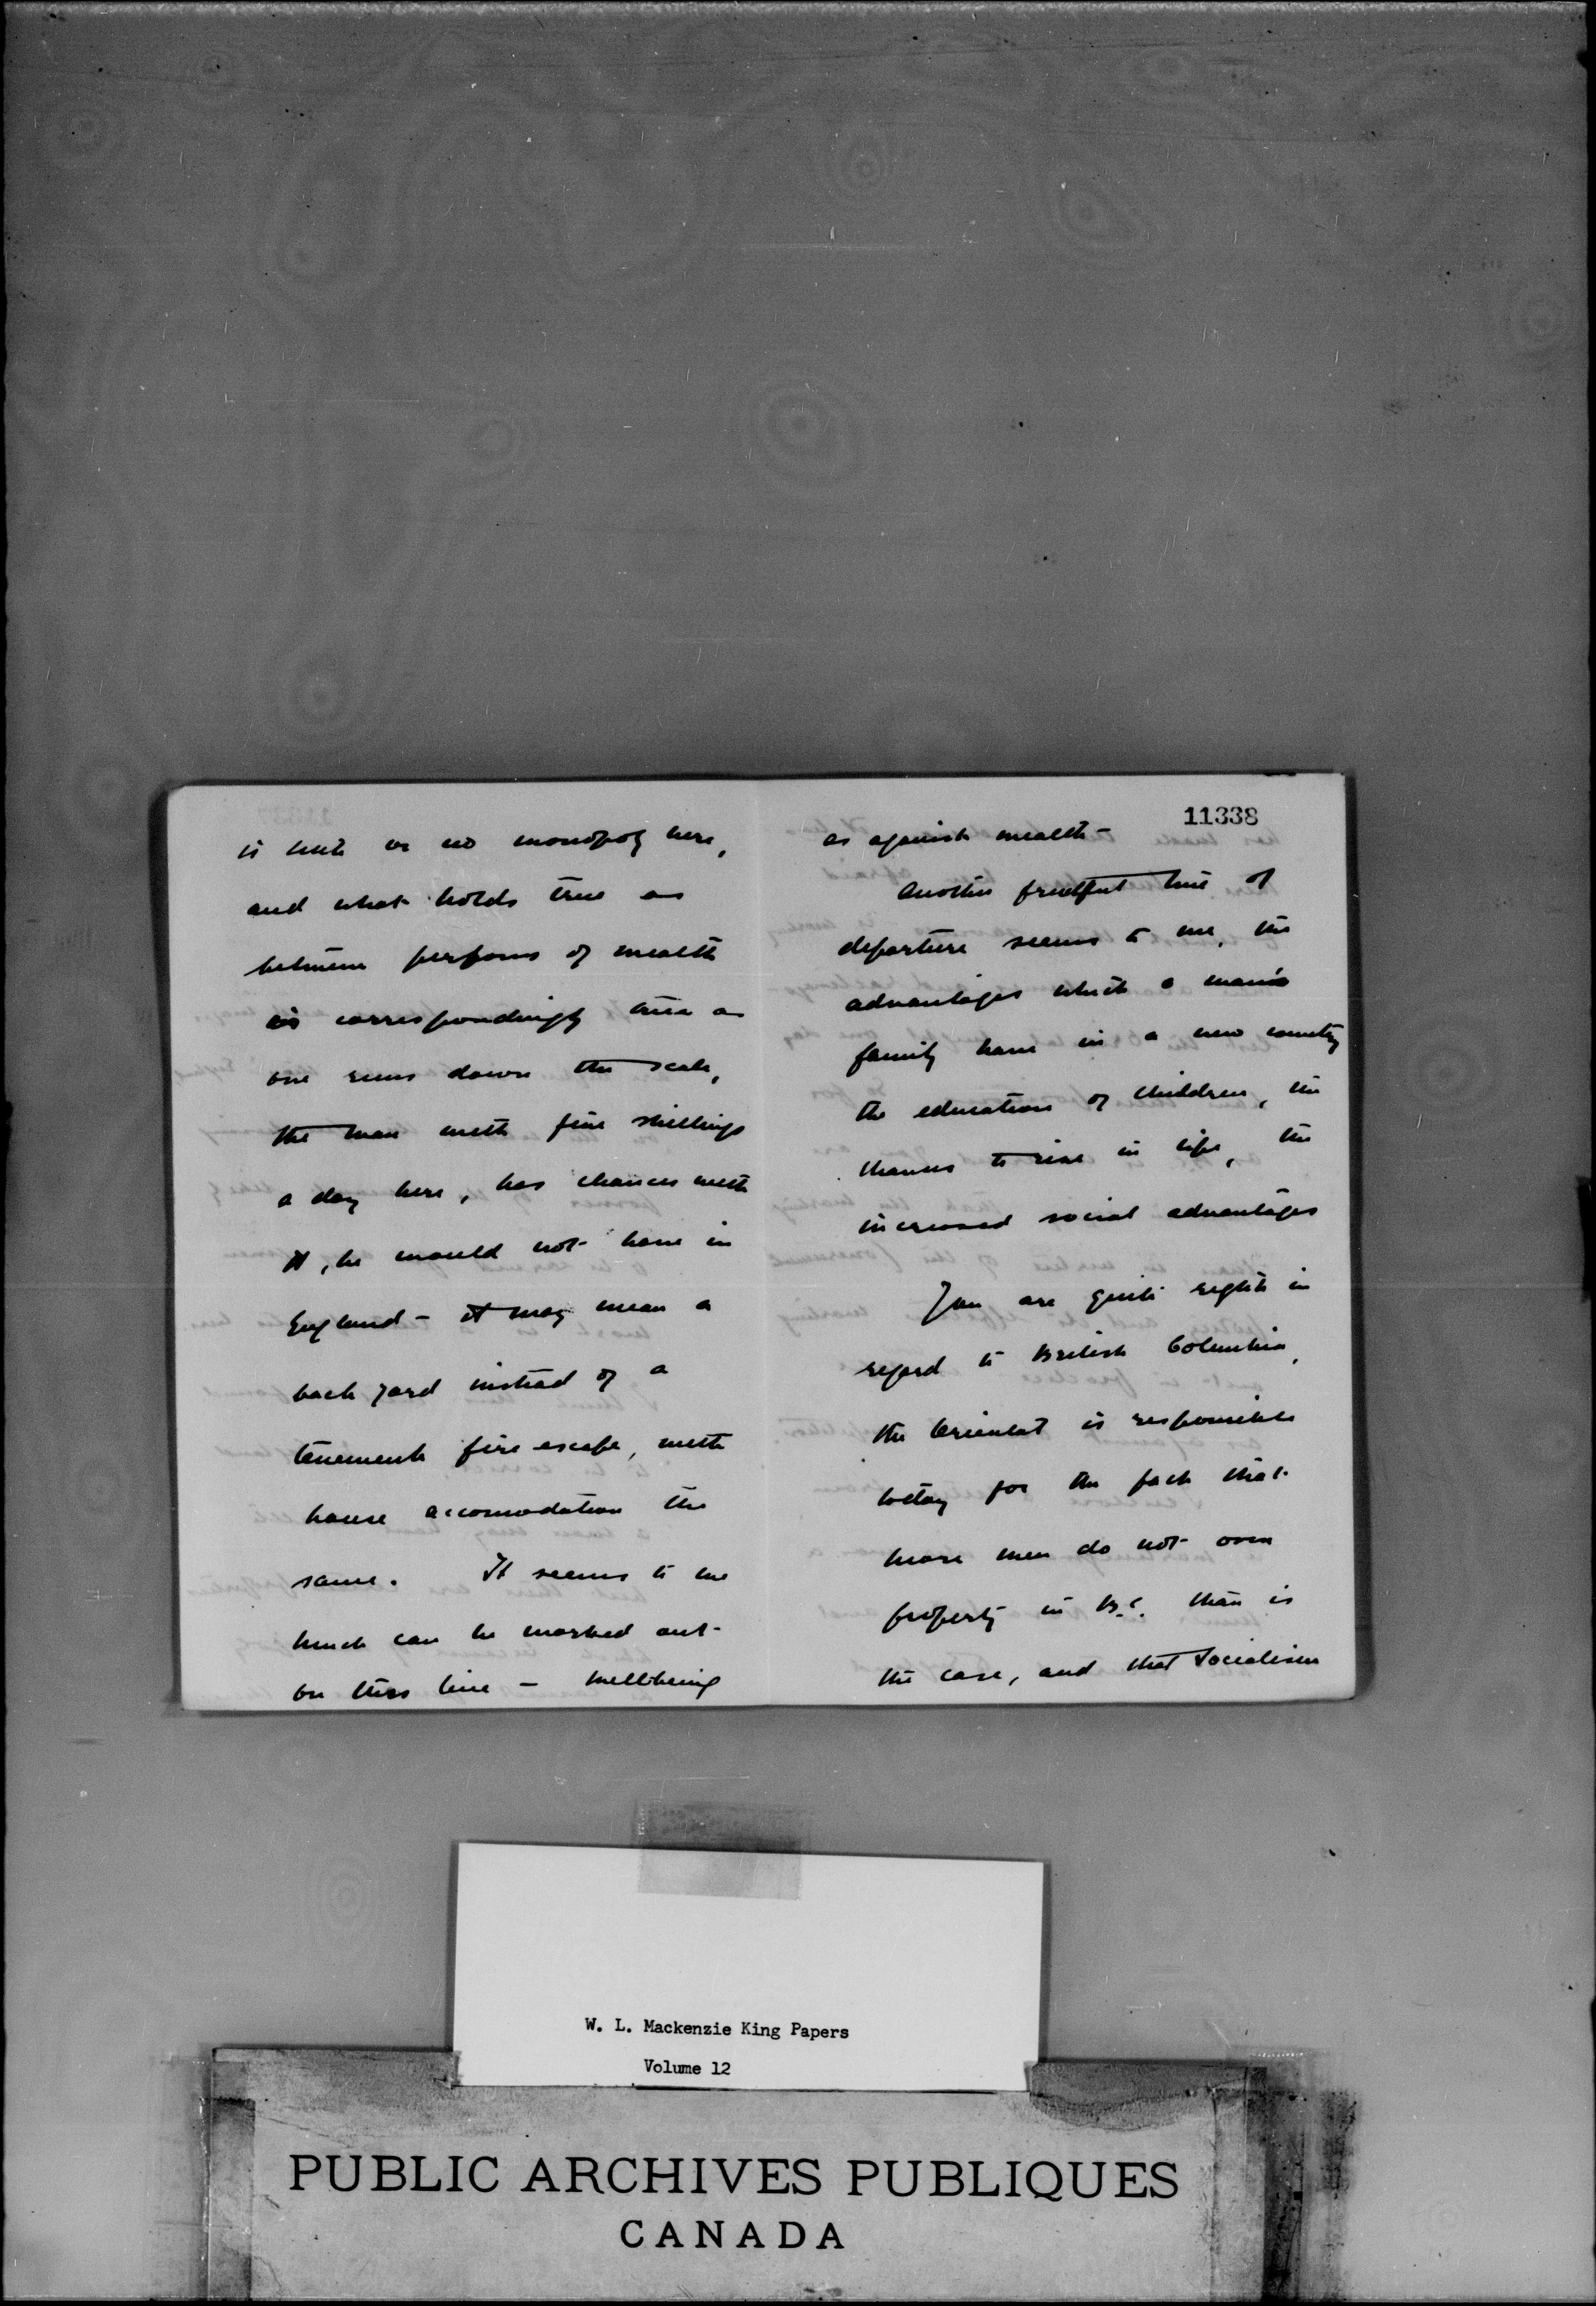 is little or no monopoly here,
and what holds true as
between persons of wealth
is correspondingly true as
one runs down the scale,
the man with five shillings
a day here, has chances with
it, he would not have in
England - it may mean a
back yard instead of a
tenement fire escape, with
house accomodation the
same. It seems to me
much can be worked out
on this line - wellbeing
11338
as against wealth -
Another fruitful line of
departure seems to me, the
advantages which a man's
family have in a new country
the education of children, the
chances to rise in life, the
increased social advantages
You are quite right in
regard to British Columbia,
the Oriental is responsible
today for the fact that
more men do not own
property in B.C. than is
the case, and that Socialism
W. L. Mackenzie King Papers
Volume 12
PUBLIC ARCHIVES PUBLIQUES
CANADA